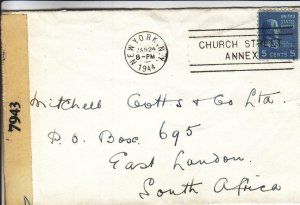 NEW YORK, N.Y.
JAN 24
8-PM
1944
CHURCH STREET
ANNEX
UNITED STATES
5 CENTS 5
7943
Mitchell Cotts & Co Ltd.
P.O. Box 695
East London.
South Africa